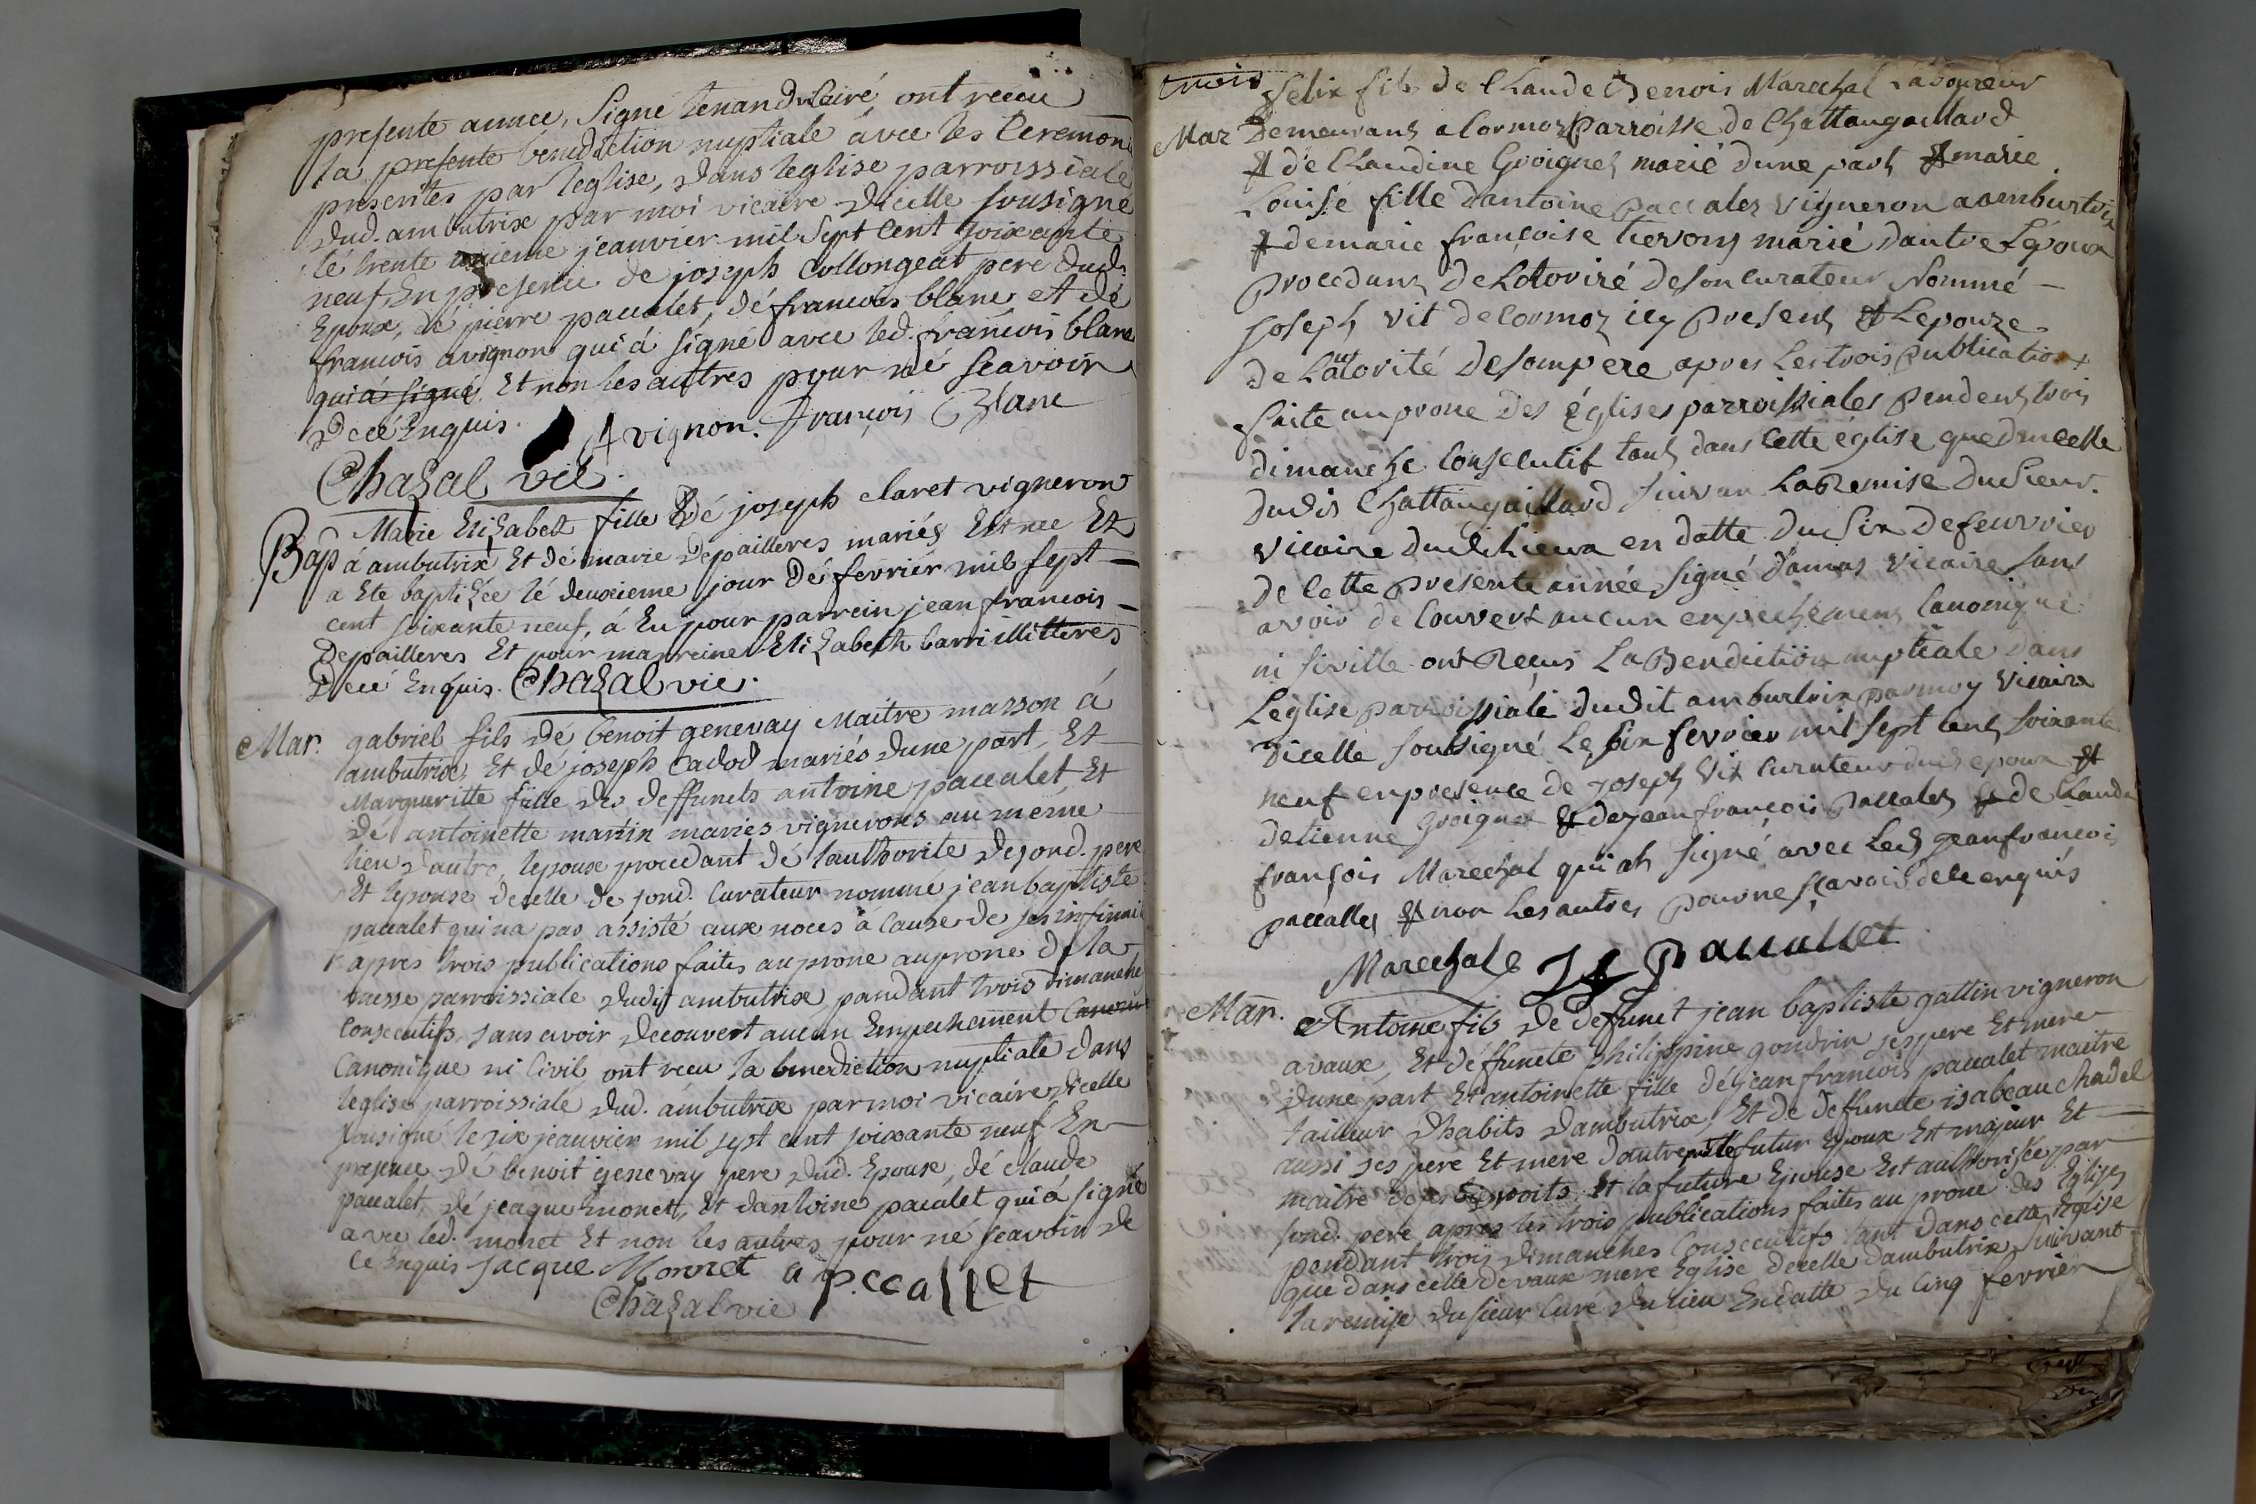 presente annee, signé tenand vicaire, ont receu
la presente bénédiction nuptiale avec les ceremon
prescrites par leglise, dans leglise parroissiale
dud. ambutrix par moi vicaire dicelle sousigné
lé trente unieme jeanvier mil sept cent soixante
neuf. En presence de joseph collongeat pere dud.
Epoux, dé pierre paccalet, dé francois blanc et dé
francois avignon qui á signé avec led. francois blanc
qui á signé Et non les autres pour né scavoir
De cé Enquis. Avignon. françois Blanc
Chazal vic.
Bap Marie Elizabet fille dé joseph claret vigneron
á ambutrix Et dé marie depailleres mariés Est née Et
a Eté baptizée lé deuxieme jour dé fevrier mil sept
cent soixante neuf, á Eu pour parrein jean francois
Depailleres Et pour marreine Elizabeth barrillieres
De cé Enquis. Chazal vic.
Mar. gabriel fils dé benoit genevay Maitre masson á
ambutrix, Et dé joseph Cadod mariés dune part, Et
Margueritte fille des deffuncts antoine paccalet, Et
dé antoinette martin mariés vignerons au méme
lieu d'autre, lepoux procedant dé lauthorité de sond. pere
Et lepouse decelle de sond. curateur nommé jean baptiste
paccalet qui na pas assisté aux noces á cause de ses infirmi
apres trois publications faites au prone au prone de la
messe parroissiale dudit ambutrix, pandant trois dimanche
consecutifs, sans avoir decouvert aucun Empechement
Canonique ni Civil, ont recu la benediction nuptiale dans
leglise parroissiale dud. ámbutrix par moi vicaire dicelle
sousigné le six jeanvier mil sept cent soixante neuf En
presence dé benoit genevay pere dud. Epoux, dé claude
paccalet, dé jeaque monet, Et dantoine paccalet qui á signé
avec led. monet Et non les autres pour né scavoir de
ce Enquis jacque Monnet a p.ccallet
Chazal vic
trois
felix fils de Claude Benois Marechal Laboureur
Mar Demeurans a Cormoz Parroisse de Chattangaillard
& de Claudine Groignet marié dune part & marie
Louise fille dantoine paccalet vigneron a ambutrix
& de marie françoise hevons marié dautre Lépoux
procedant de Lotoriré de son curateur Nommé
joseph vit de Cormoz icy present & Lepouze
de L'autorité de son père apres Les trois publication
faite au prone des églises parroissiales pendent trois
dimanche consecutif tant dans cette église que dan celle
dudis Chattangaillard suivan La Remise du Sieur
vicaire dudi Lieux en datte du Six de feuvrier
de cette presente année signé damas vicaire sans
avoir de couvert aucun enpechement canonique
ni siville ont Reçus La Bendiction nuptiale dans
L'église parroissiale dudit amburtrix par moy vicaire
dicelle sousigné Le six fevrier mil sept cent soixante
neuf en presence de joseph vit curateur dud epoux &
detienne groignet & de jean françois paccalet & de Claude
françois Marechal qui ah signé avec Led jean francois
paccallet & non Les autres pour ne sçavoir de ce enquis
Marechal jf paccallet
Mar. Antoine fils de deffunct jean baptiste gattin vigneron
a vaux, Et deffuncte philippine goudrin ses pere Et mere
dune part Et antoinette fille dé jean francois paccalet maitre
tailleur dhabits dambutrix, Et de deffuncte isabeau chadel
aussi ses pere Et mere dautre part le futur Epoux Est majeur Et
maitre de ses droits, Et la future Epouse Est authorisée par
sond. pere apres les trois publications faites au prone des Eglises
pendant trois dimanches consecutifs tant dans cette Eglise
que dans celle de vaux mere Eglise decelle dambutrix, suivant
la remise du sieur curé du lieu En datte du cinq fevrier